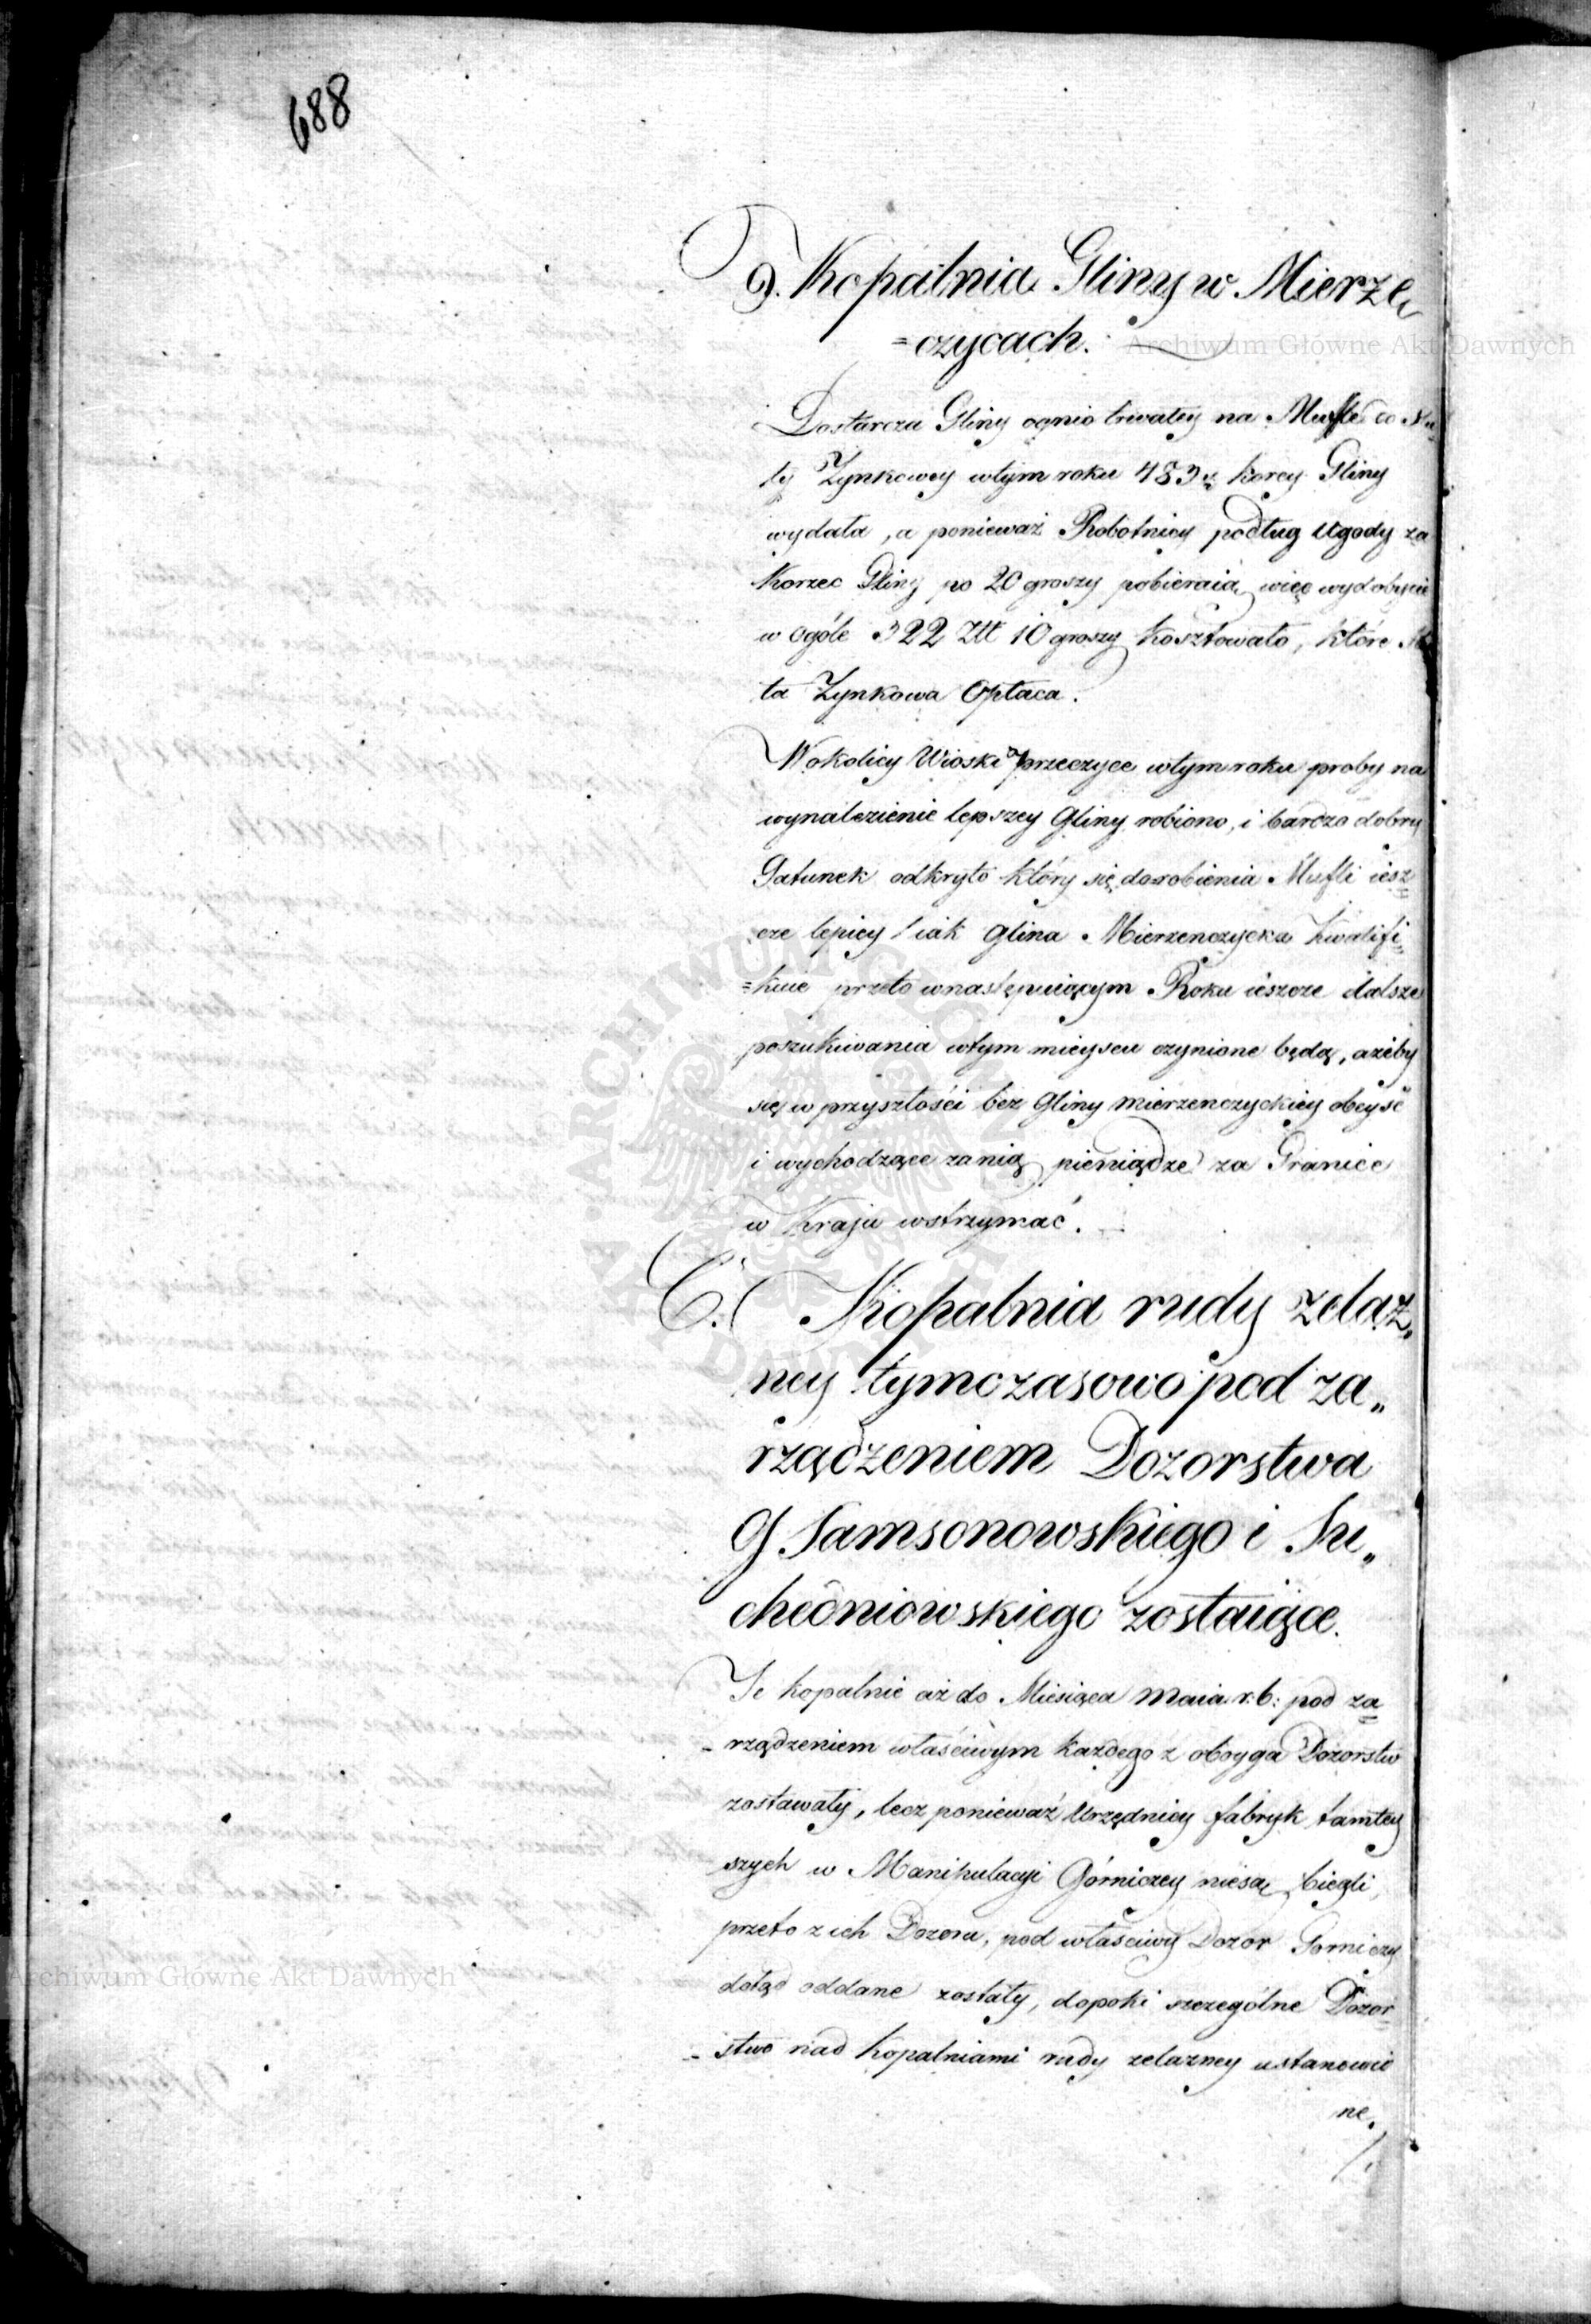 688
9. Kopalnia Gliny w Mierze„
=czycach.
Archiwum Główne Akt Dawnych
Dostarcza Gliny ognio trwałey na Mufle do Hu=
ty Zynkowey wtym roku 483½ korcy Gliny
wydała, a ponieważ Robotnicy podług Ugody za
Korzec Gliny po 20 groszy pobieraią, więc wydobycie
w ogóle 322 Złt 10 groszy kosztowało, które
ta Zynkowa Opłaca.
W okolicy Wioski Przeczyce wtym roku proby na
wynalezienie lepszey Gliny robiono, i bardzo dobry
Gatunek odkryto który się do robienia Mufli iesz=
cze lepiey iak Glina Mierzenczycka kwalifi=
=kuie przeto wnastępuiącym Roku ieszcze dalsze
poszukiwania wtym mieyscu czynione będą, ażeby
się w przyszłości bez Gliny mierzenczyckiey obeyść
i wychodzące za nią pieniądze za Granice
w Kraju wstrzymać.
C. Kopalnia rudy zelaz„
ney tymczasowo pod za„
rządzeniem Dozorstwa
G Samsonowskiego i Su„
chedniowskiego zostaiące.
Te kopalnie aż do Miesiąca Maia r. b: pod za=
-rządzeniem właściwym każdego z oboyga Dozorstw
zostawały, lecz ponieważ Urzędnicy fabryk tamtey
szych w Manipulacyi Górniczey niesą biegli,
przeto z ich Dozoru, pod właściwy Dozor Gorniczy
dotąd oddane zostały, dopoki szczególne Dozor=
-stwo nad kopalniami rudy zelazney ustanowio
ne.
Archiwum Główne Akt Dawnych
ARCHIWUM GŁÓWNE AKT DAWNYCH